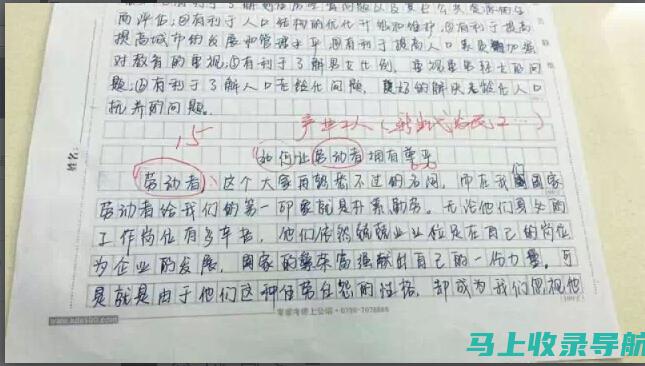 而评估;②有利于人口结构的优化升级和维护;③有利于提高
提高城市的发展和管理水平④有利于提高人口素质加强
对教育的重视;⑤有利于了解男女比例,重视男男轻女的问
题;⑥有利于了解人口老龄化问题,更好的解决老龄化人口
抚养的问题。
15
产业工人(新生代农民工…)
如何让劳动者拥有尊严
劳动者,这个大家再熟悉不过的名词,而在我们国家
劳动者给我们的第一印象就是朴素勤劳。无论他们身处的
工作岗位有多辛苦,他们依然兢兢业业位处在自己的岗位
为企业的发展,国家的繁荣富强献出自己的一份力量。可
是就是由于他们这种任劳任怨的性格,却成为我们忽视他
姓名:
马上收录导航